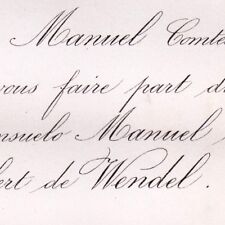 Manuel Comte
vous faire part d
nsuelo Manuel
ert de Wendel.